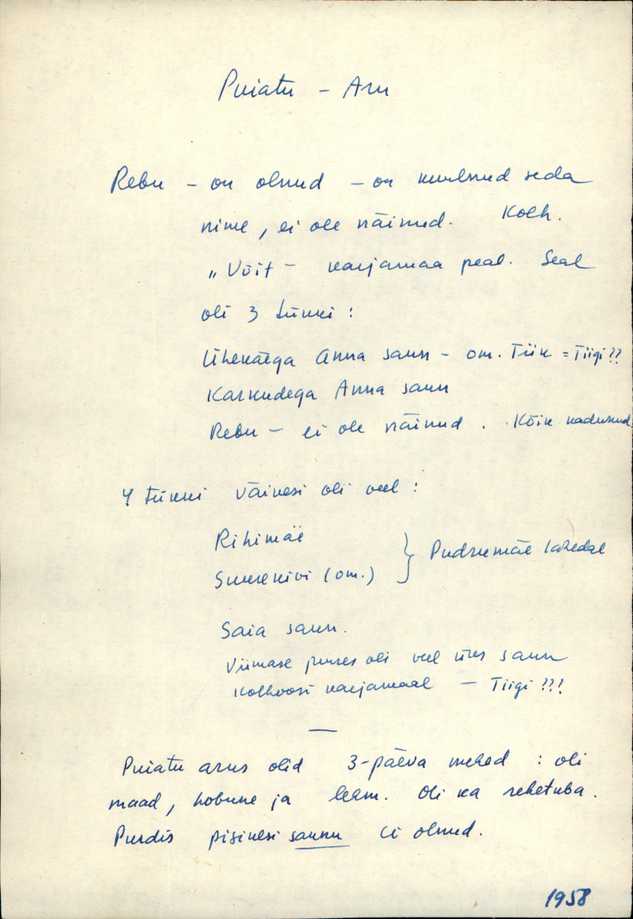 Puiatu – Aru
Rebu – on olnud – on kuulnud seda
nime, ei ole näinud. Kolh.
„Võit – karjamaa peal. Seal
oli 3 tükki:
Ühekäega Anna saun – om. Tiik = Tiigi??
Karkudega Anna saun
Rebu – ei ole näinud. Kõik kadunud.
4 tükki väikesi oli veel:
Rihimäe
Suurekivi (om.) } Pudrumäe lähedal
Saia saun.
Viimase juures oli veel üks saun
Kolhoosi karjamaal – Tiigi???
—
Puiatu arus olid 3-päeva mehed: oli
maad, hobune ja lehm. Oli ka rehetuba.
Purdis pisikesi saunu ei olnud.
1958